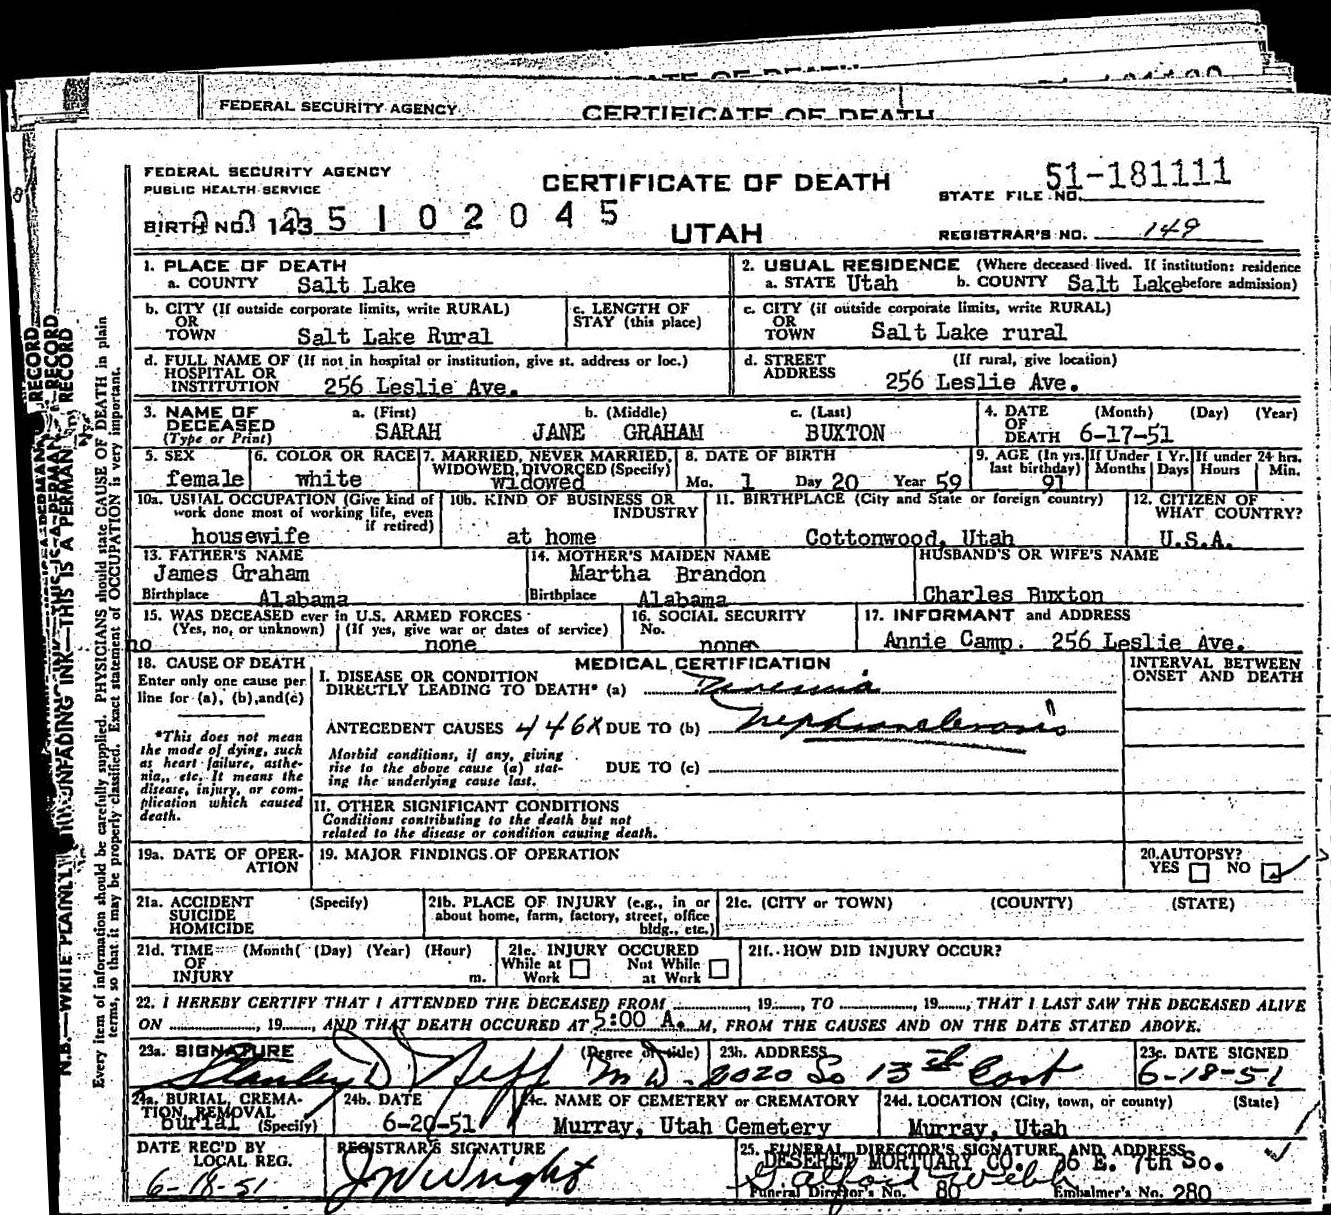 FEDERAL SECURITY AGENCY CERTIFICATE OF DEATH
FEDERAL SECURITY AGENCY
PUBLIC HEALTH SERVICE
CERTIFICATE OF DEATH
UTAH
STATE FILE NO. 51-181111
BIRTH NO. 143 5 1 0 2 0 4 5
REGISTRAR'S NO. 149
1. PLACE OF DEATH
a. COUNTY Salt Lake
2. USUAL RESIDENCE (Where deceased lived. If institution: residence before admission)
a. STATE Utah b. COUNTY Salt Lake
b. CITY (If outside corporate limits, write RURAL)
OR
TOWN Salt Lake Rural
c. LENGTH OF
STAY (this place)
c. CITY (if outside corporate limits, write RURAL)
OR
TOWN Salt Lake rural
d. FULL NAME OF (If not in hospital or institution, give st. address or loc.)
HOSPITAL OR
INSTITUTION 256 Leslie Ave.
d. STREET (If rural, give location)
ADDRESS 256 Leslie Ave.
3. NAME OF DECEASED
(Type or Print)
a. (First) b. (Middle) c. (Last)
SARAH JANE GRAHAM BUXTON
4. DATE (Month) (Day) (Year)
OF
DEATH 6-17-51
5. SEX
female
6. COLOR OR RACE
white
7. MARRIED, NEVER MARRIED,
WIDOWED, DIVORCED (Specify)
widowed
8. DATE OF BIRTH
Mo. 1 Day 20 Year 59
9. AGE (In yrs. last birthday) 91
If Under 1 Yr. Months Days
If under 24 hrs. Hours Min.
10a. USUAL OCCUPATION (Give kind of
work done most of working life, even
if retired)
housewife
10b. KIND OF BUSINESS OR
INDUSTRY
at home
11. BIRTHPLACE (City and State or foreign country)
Cottonwood, Utah
12. CITIZEN OF
WHAT COUNTRY?
U.S.A.
13. FATHER'S NAME
James Graham
Birthplace Alabama
14. MOTHER'S MAIDEN NAME
Martha Brandon
Birthplace Alabama
HUSBAND'S OR WIFE'S NAME
Charles Buxton
15. WAS DECEASED ever in U.S. ARMED FORCES
(Yes, no, or unknown) (If yes, give war or dates of service)
no none
16. SOCIAL SECURITY
No. none
17. INFORMANT and ADDRESS
Annie Camp. 256 Leslie Ave.
18. CAUSE OF DEATH
Enter only one cause per
line for (a), (b), and (c)
*This does not mean
the mode of dying, such
as heart failure, asthe-
nia, etc. It means the
disease, injury, or com-
plication which caused
death.
MEDICAL CERTIFICATION
I. DISEASE OR CONDITION
DIRECTLY LEADING TO DEATH* (a) Uremia
ANTECEDENT CAUSES 446X DUE TO (b) Nephrosclerosis
Morbid conditions, if any, giving
rise to the above cause (a) stat-
ing the underlying cause last.
DUE TO (c)
II. OTHER SIGNIFICANT CONDITIONS
Conditions contributing to the death but not
related to the disease or condition causing death.
INTERVAL BETWEEN
ONSET AND DEATH
19a. DATE OF OPER-
ATION
19. MAJOR FINDINGS OF OPERATION
20. AUTOPSY?
YES NO
21a. ACCIDENT (Specify)
SUICIDE
HOMICIDE
21b. PLACE OF INJURY (e.g., in or
about home, farm, factory, street, office
bldg., etc.)
21c. (CITY or TOWN) (COUNTY) (STATE)
21d. TIME (Month( (Day) (Year) (Hour)
OF
INJURY m.
21e. INJURY OCCURED
While at Work Not While at Work
21f. HOW DID INJURY OCCUR?
22. I HEREBY CERTIFY THAT I ATTENDED THE DECEASED FROM , 19 , TO , 19 , THAT I LAST SAW THE DECEASED ALIVE
ON , 19 , AND THAT DEATH OCCURED AT 5:00 A. M, FROM THE CAUSES AND ON THE DATE STATED ABOVE.
23a. SIGNATURE (Degree or title)
Stanley D Neff M D.
23b. ADDRESS
2020 So 13th East
23c. DATE SIGNED
6-18-51
24a. BURIAL, CREMA-
TION, REMOVAL
(Specify) burial
24b. DATE
6-20-51
24c. NAME OF CEMETERY or CREMATORY
Murray, Utah Cemetery
24d. LOCATION (City, town, or county) (State)
Murray, Utah
DATE REC'D BY
LOCAL REG.
6-18-51
REGISTRAR'S SIGNATURE
J W Wright
25. FUNERAL DIRECTOR'S SIGNATURE AND ADDRESS
DESERET MORTUARY CO. 36 E. 7th So.
Webb
Funeral Director's No. 80 Embalmer's No. 280
N.B.—WRITE PLAINLY UNFADING INK—THIS IS A PERMANENT RECORD
Every item of information should be carefully supplied. PHYSICIANS should state CAUSE OF DEATH in plain
terms, so that it may be properly classified. Exact statement of OCCUPATION is very important.